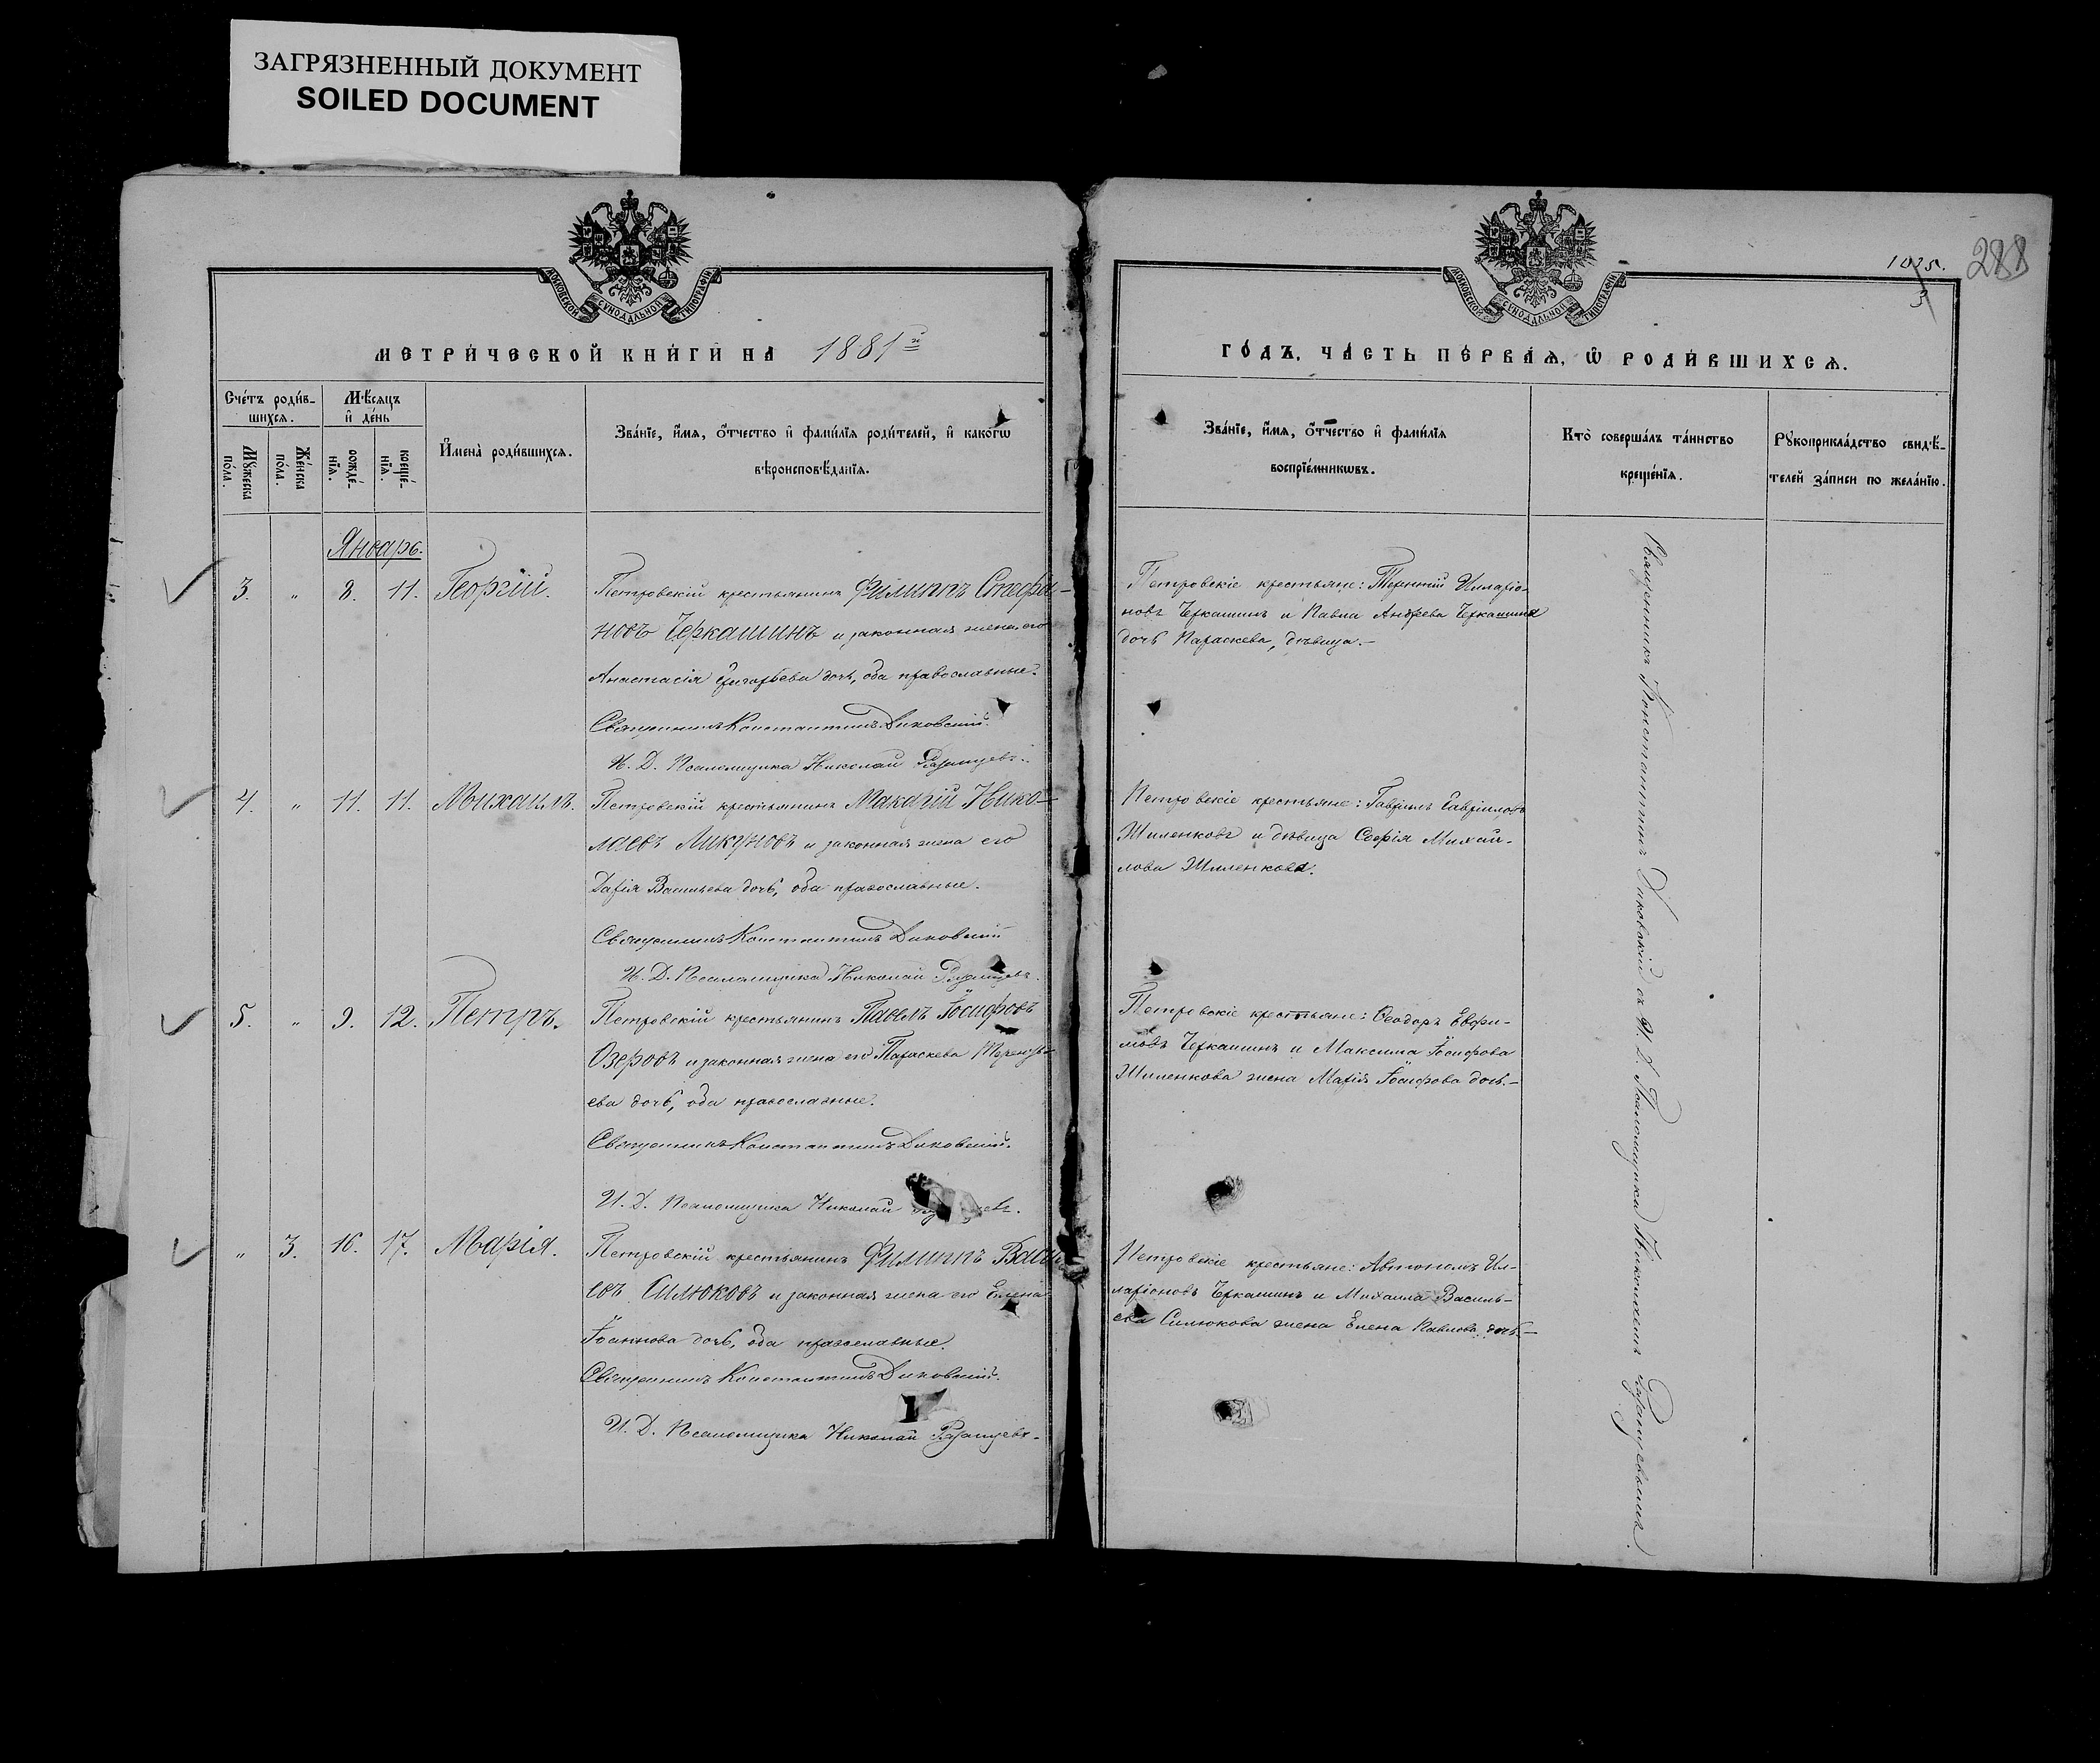 ЗАГРЯЗНЕННЫЙ ДОКУМЕНТ
SOILED DOCUMENT
МОСКОВСКОЙ СѴНОДАЛЬНОЙ ТИПОГРАФІИ
МЕТРИ́ЧЕСКОЙ КНИ́ГИ НА 1881й
Сче́тъ роди́в-
шихся.
Мѣ́сяцъ
и҆ де́нь
Мꙋ́жеска
по́ла.
Же́нска
по́ла.
рожде́-
нїя.
креще́-
нїя.
И҆мена̀ роди́вшихся.
Зва́нїе, и҆́мя, ѻ҆́тчество и҆ фами́лїя роди́телей, и҆ како́гѡ
вѣроисповѣ́данїя.
Январь.
3. " 8. 11. Георгій.
Петровскій крестьянинъ Филиппъ Стефа-
новъ Черкашинъ и законная жена его
Анастасія Григорьева дочь, оба православные.
Священникъ Константинъ Диковскій.
И. Д. Псаломщика Николай Рязанцевъ.
4. " 11. 11. Михаилъ.
Петровскій крестьянинъ Макарій Нико-
лаевъ Ликуновъ и законная жена его
Дарія Васильева дочь, оба православные.
Священникъ Константинъ Диковскій
И. Д. Псаломщика Николай Рязанцевъ.
5. " 9. 12. Петръ.
Петровскій крестьянинъ Павелъ Іосифовъ
Озеровъ и законная жена его Параскева Терентье-
ева дочь, оба православные.
Священникъ Константинъ Диковскій.
И. Д. Псаломщика Николай
" 3. 16. 17. Марія.
Петровскій крестьянинъ Филиппъ Василь
евъ Силюковъ и законная жена его Елена
Іоаннова дочь, оба православные.
Священникъ Константинъ Диковскій.
И. Д. Псаломщика Николай Рязанцевъ.
МОСКОВСКОЙ СѴНОДАЛЬНОЙ ТИПОГРАФІИ
1025.
3
288
ГО́ДЪ, ЧА́СТЬ ПЕ́РВАЯ, Ѡ҆ РОДИ́ВШИХСЯ.
Зва́нїе, и҆́мя, ѻ҆́тчество и҆ фами́лїя
воспрїе́мникѡвъ.
Кто̀ соверша́лъ та́инство
креще́нїя.
Рꙋкоприкла́дство свидѣ́-
телей за́писи по жела́нїю.
Петровскіе крестьяне: Терентій Иларіо-
новъ Черкашинъ и Павла Андреева Черкашина
дочь Параскева, дѣвица.-
Петровскіе крестьяне: Гавріилъ Гавріиловъ
Шиленковъ и дѣвица Софія Михай-
лова Шиленкова.
Петровскіе крестьяне: Ѳеодоръ Евфи-
мовъ Черкашинъ и Максима Іосифова
Шиленкова жена Марія Іосифова дочь.-
Петровскіе крестьяне: Автономъ Ил-
ларіоновъ Черкашинъ и Михаила Василь-
ева Силюкова жена Елена Павлова дочь.-
Священникъ Константинъ Диковскій съ И. Д. Псаломщика Николаемъ Рязанцевымъ.